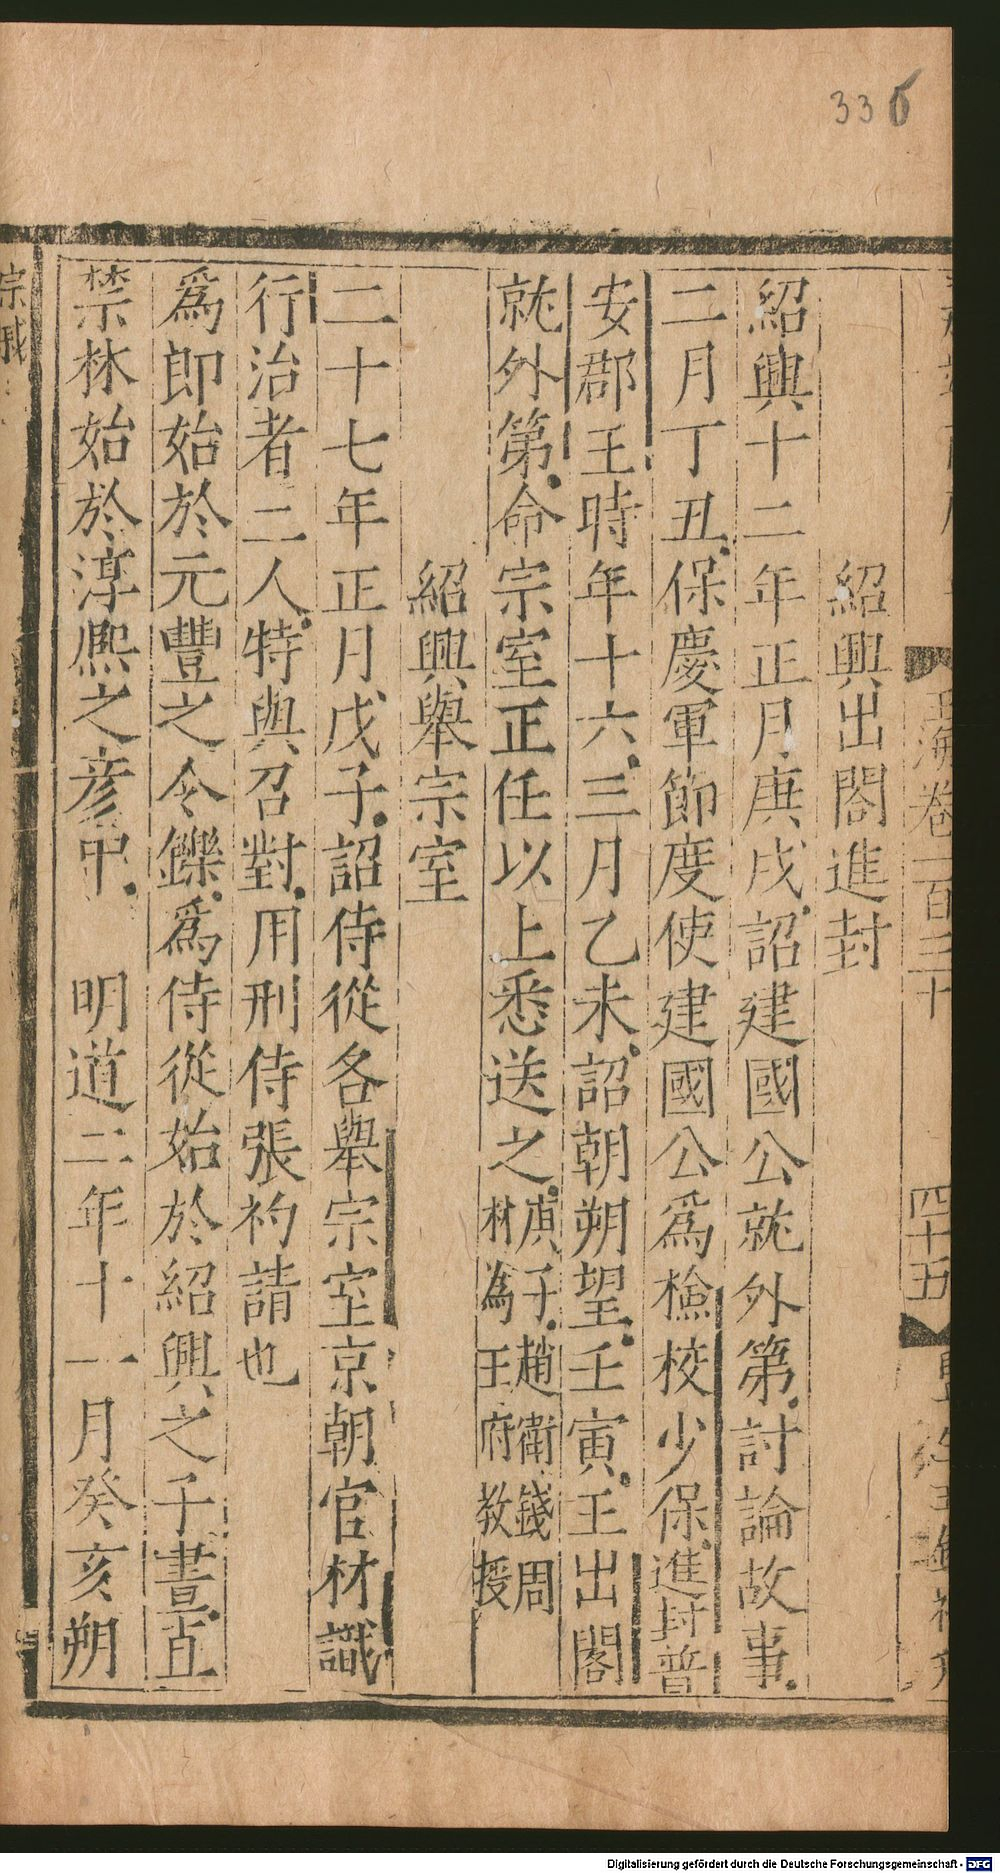 336
玉海卷一百三十
四十五
紹興出閤進封
紹興十二年正月庚戌詔建國公就外第討論故事
二月丁丑保慶軍節度使建國公為檢校少保進封普
安郡王時年十六三月乙未詔朝朔望壬寅王出閤
就外第命宗室正任以上悉送之庚子趙衛錢周
材為王府教授
紹興舉宗室
二十七年正月戊子詔侍從各舉宗室京朝官材識
行治者二人特與召對用刑侍張礿請也
為郎始於元豐之令鑠為侍從始於紹興之子晝直
禁林始於淳熙之彥中 明道二年十一月癸亥朔
宗戚
Digitalisierung gefördert durch die Deutsche Forschungsgemeinschaft - DFG